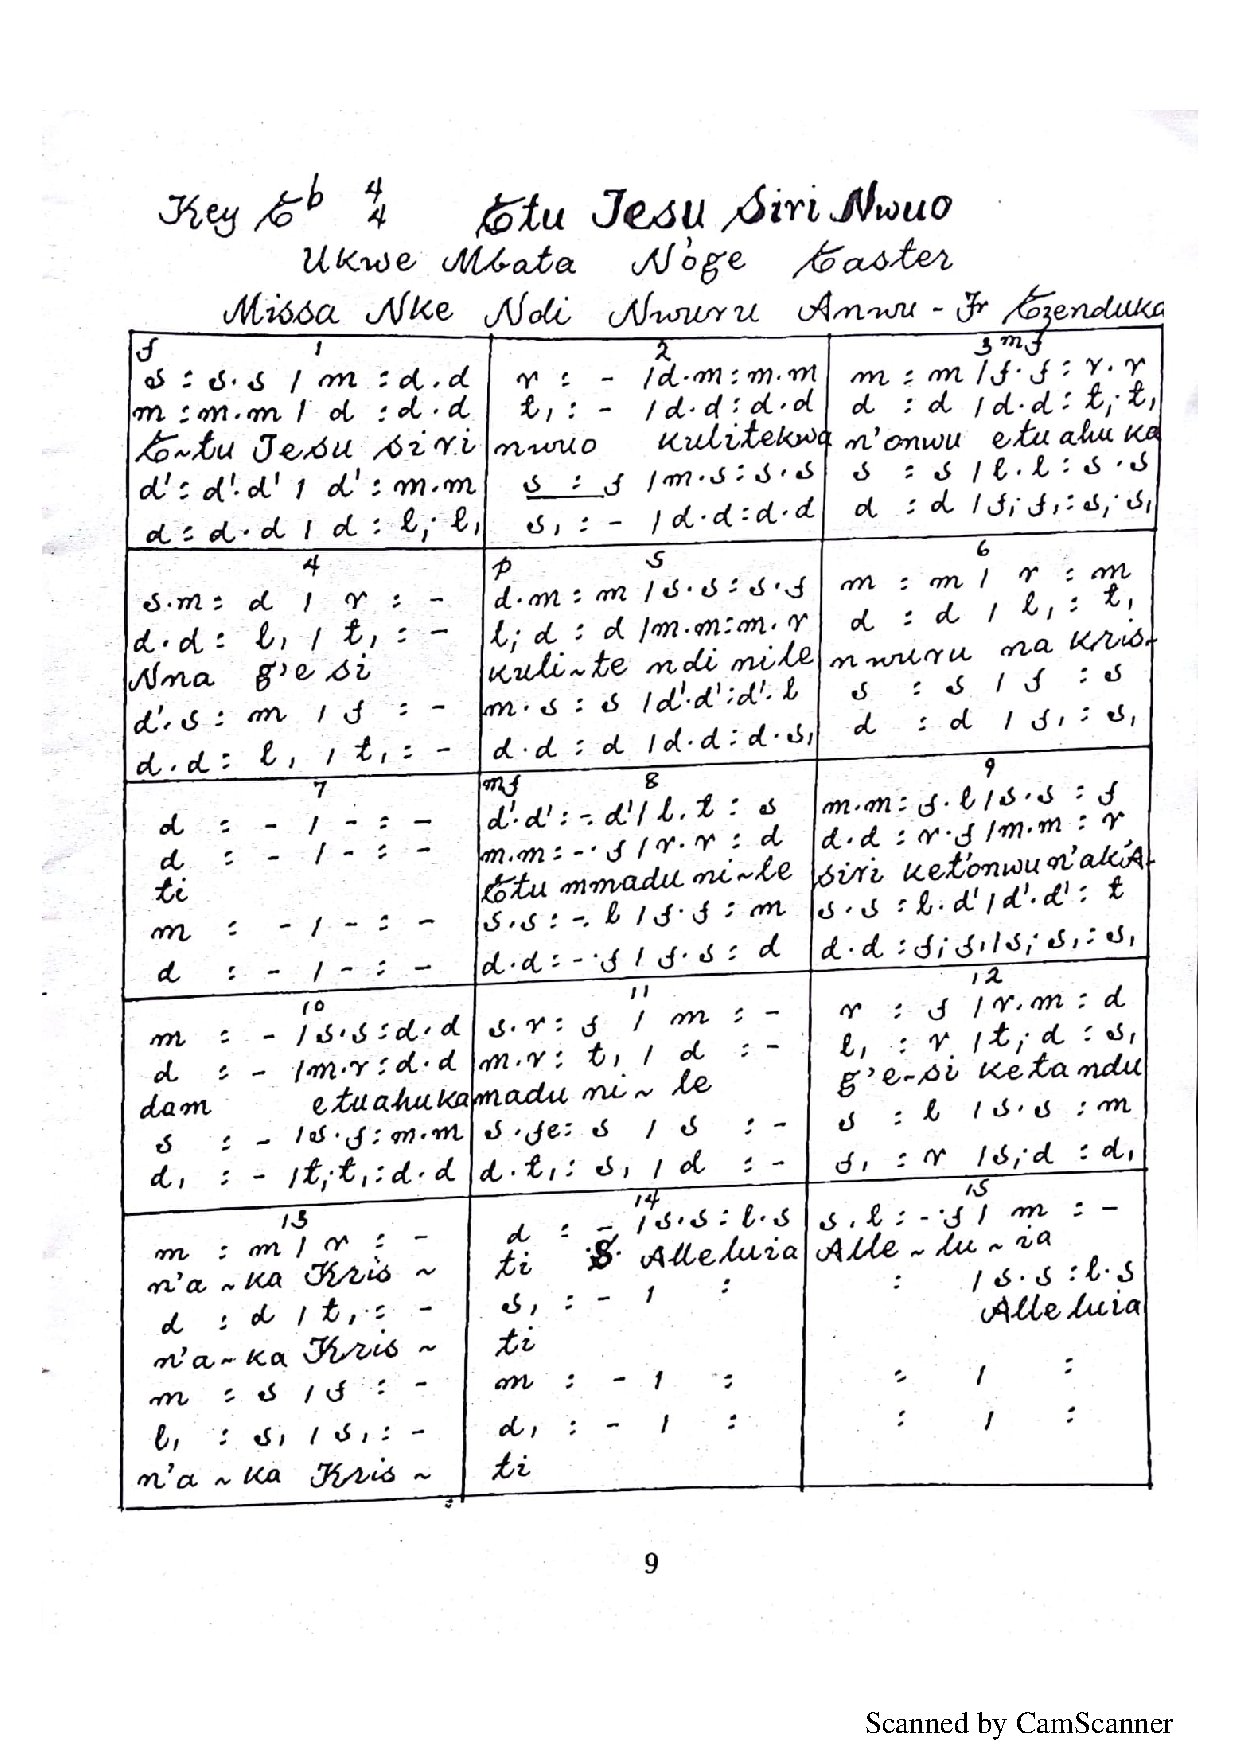 Key Eb 4/4 Etu Jesu Siri Nwuo
Ukwe Mbata N'oge Easter
Missa Nke Ndi Nwuru Anwu - Fr Ezenduka
f 1 2 3 mf
s : s.s / m : d.d r : - / d.m : m.m m : m / f.f : r.r
m : m.m / d : d.d t, : - / d.d : d.d d : d / d.d : t,.t,
E~tu Jesu siri nwuo kulitekwa n'onwu etu ahu ka
d' : d'.d' / d' : m.m s : f / m.s : s.s s : s / l.l : s.s
d : d.d / d : l,.l, s, : - / d.d : d.d d : d / f,.f, : s,.s,
4 p 5 6
s.m : d / r : - d.m : m / s.s : s.f m : m / r : m
d.d : l, / t, : - l,.d : d / m.m : m.r d : d / l, : t,
Nna g'e si kuli~te ndi nile nwuru na Kris-
d'.s : m / f : - m.s : s / d'.d' : d'.l s : s / f : s
d.d : l, / t, : - d.d : d / d.d : d.s, d : d / f, : s,
7 mf 8 9
d : - / - : - d'.d' : -.d' / l.t : s m.m : f.l / s.s : f
d : - / - : - m.m : -.f / r.r : d d.d : r.f / m.m : r
ti Etu mmadu ni~le siri keta'onwu n'aka A-
m : - / - : - s.s : -.l / f.f : m s.s : l.d' / d'.d' : t
d : - / - : - d.d : -.f / f.s : d d.d : f,.f, / s,.s, : s,
10 11 12
m : - / s.s : d.d s.r : f / m : - r : f / r.m : d
d : - / m.r : d.d m.r : t, / d : - l, : r / t,.d : s,
dam etu ahu ka madu ni~le g'e-si keta ndu
s : - / s.f : m.m s.fe : s / s : - s : l / s.s : m
d, : - / t,.t, : d.d d.t, : s, / d : - f, : r / s,.d : d,
13 14 15
m : m / r : - d : - / s.s : l.s s.l : -.f / m : -
n'a~ka Kris~ ti Alleluia Alle~lu~ia
d : d / t, : - s, : - / : : / s.s : l.s
n'a~ka Kris~ ti Alleluia
m : s / f : - m : - / : : / :
l, : s, / s, : - d, : - / : : / :
n'a~ka Kris~ ti
9
Scanned by CamScanner